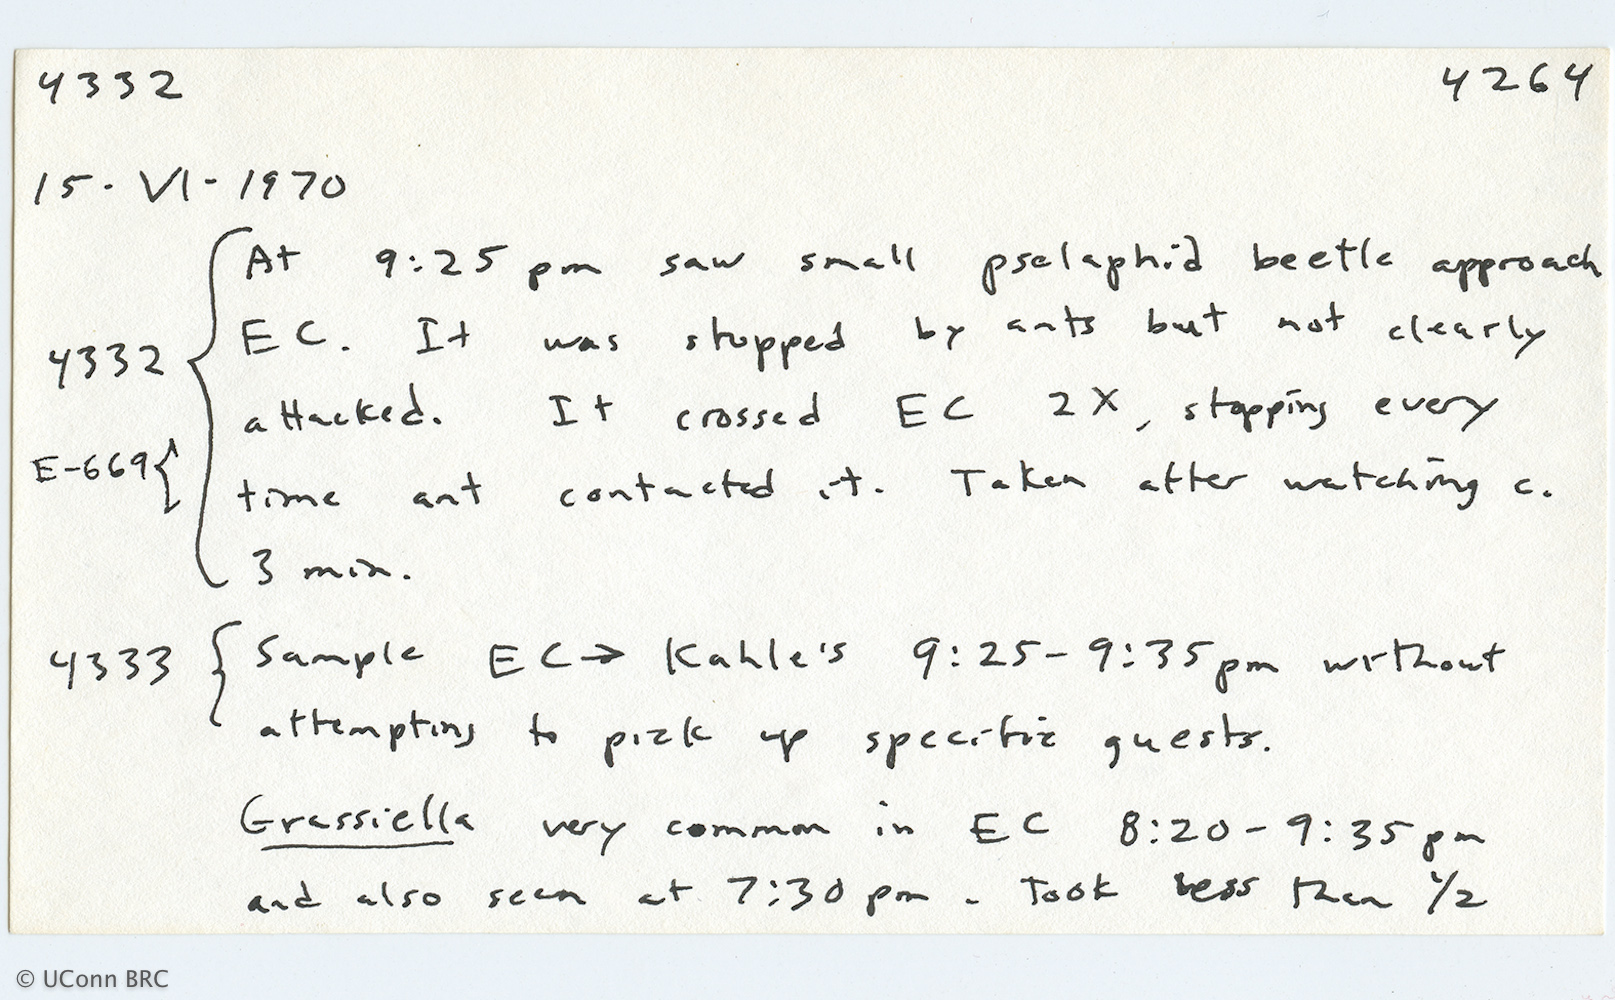 4332 4264
15. VI - 1970
At 9:25 pm saw small pselaphid beetle approach
4332 { EC. It was stopped by ants but not clearly
attacked. It crossed EC 2X, stopping every
E-669 { time ant contacted it. Taken after watching c.
3 min.
4333 { Sample EC → Kahle's 9:25 - 9:35 pm without
attempting to pick up specific guests.
Grassiella very common in EC 8:20 - 9:35 pm
and also seen at 7:30 pm. Took less than 1/2
© UConn BRC